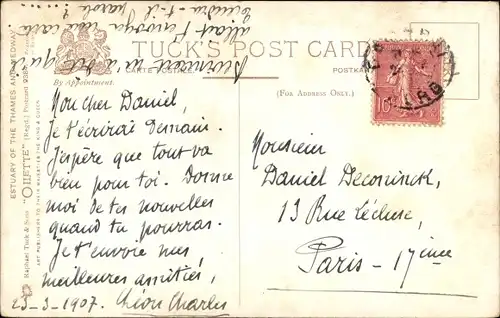 TUCK'S POST CARD
CARTE POSTALE.
POSTKAR
By Appointment.
(FOR ADDRESS ONLY.)
ESTUARY OF THE THAMES AND MEDWAY.
Raphael Tuck & Sons "OILETTE" [Regd.] Postcard
ART PUBLISHERS TO THEIR MAJESTIES THE KING & QUEEN.
Mon cher Daniel,
Je t'écrirai demain.
J'espère que tout va
bien pour toi. Donne
moi de tes nouvelles
quand tu pourras.
Je t'envoie mes
meilleures amitiés,
23-3-1907. Léon Charles
m'a dit qu'il
t'envoya une carte
tiendra t-il parole ?
Monsieur
Daniel Deconinck,
13 Rue Lécluse,
Paris-17ème
10